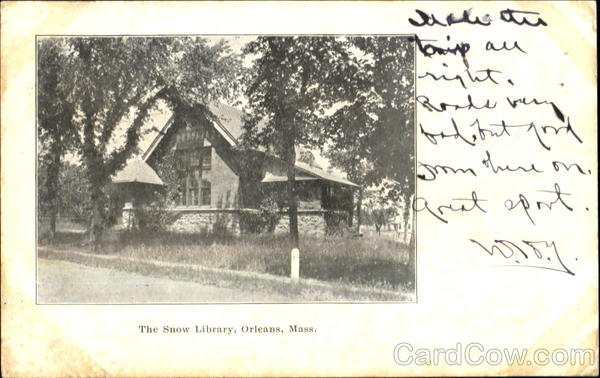 Made the
trip all
right.
Roads very
bad, but good
from here on.
Great sport.
The Snow Library, Orleans, Mass.
CardCow.com